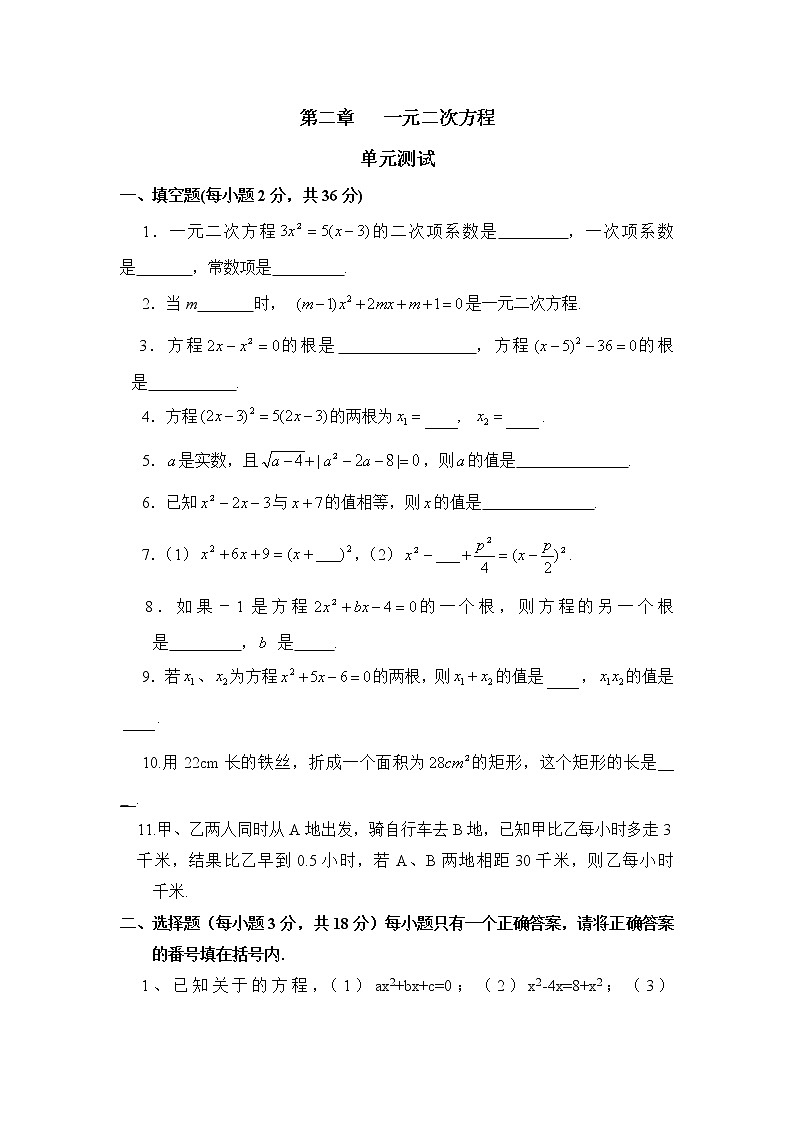 第二章 一元二次方程
单元测试
一、填空题(每小题2分，共36分)
1．一元二次方程3x²=5(x−3)的二次项系数是________，一次项系数
是______，常数项是________.
2．当m______时， (m−1)x²+2mx+m+1=0是一元二次方程.
3．方程2x−x²=0的根是______________，方程(x−5)²−36=0的根
是_________.
4．方程(2x−3)²=5(2x−3)的两根为x₁=____, x₂=____.
5．a是实数，且√a−4+|a²−2a−8|=0，则a的值是____________.
6．已知x²−2x−3与x+7的值相等，则x的值是____________.
7．(1) x²+6x+9=(x+___)²，(2) x²−___+p²/4=(x−p/2)².
8．如果－1是方程2x²+bx−4=0的一个根，则方程的另一个根
是________，b 是____.
9．若x₁、x₂为方程x²+5x−6=0的两根，则x₁+x₂的值是____，x₁x₂的值是
____.
10.用22cm长的铁丝，折成一个面积为28cm²的矩形，这个矩形的长是__
__.
11.甲、乙两人同时从A地出发，骑自行车去B地，已知甲比乙每小时多走3
千米，结果比乙早到0.5小时，若A、B两地相距30千米，则乙每小时
千米.
二、选择题（每小题3分，共18分）每小题只有一个正确答案，请将正确答案
的番号填在括号内.
1、已知关于的方程,（1）ax²+bx+c=0；（2）x²-4x=8+x²；（3）